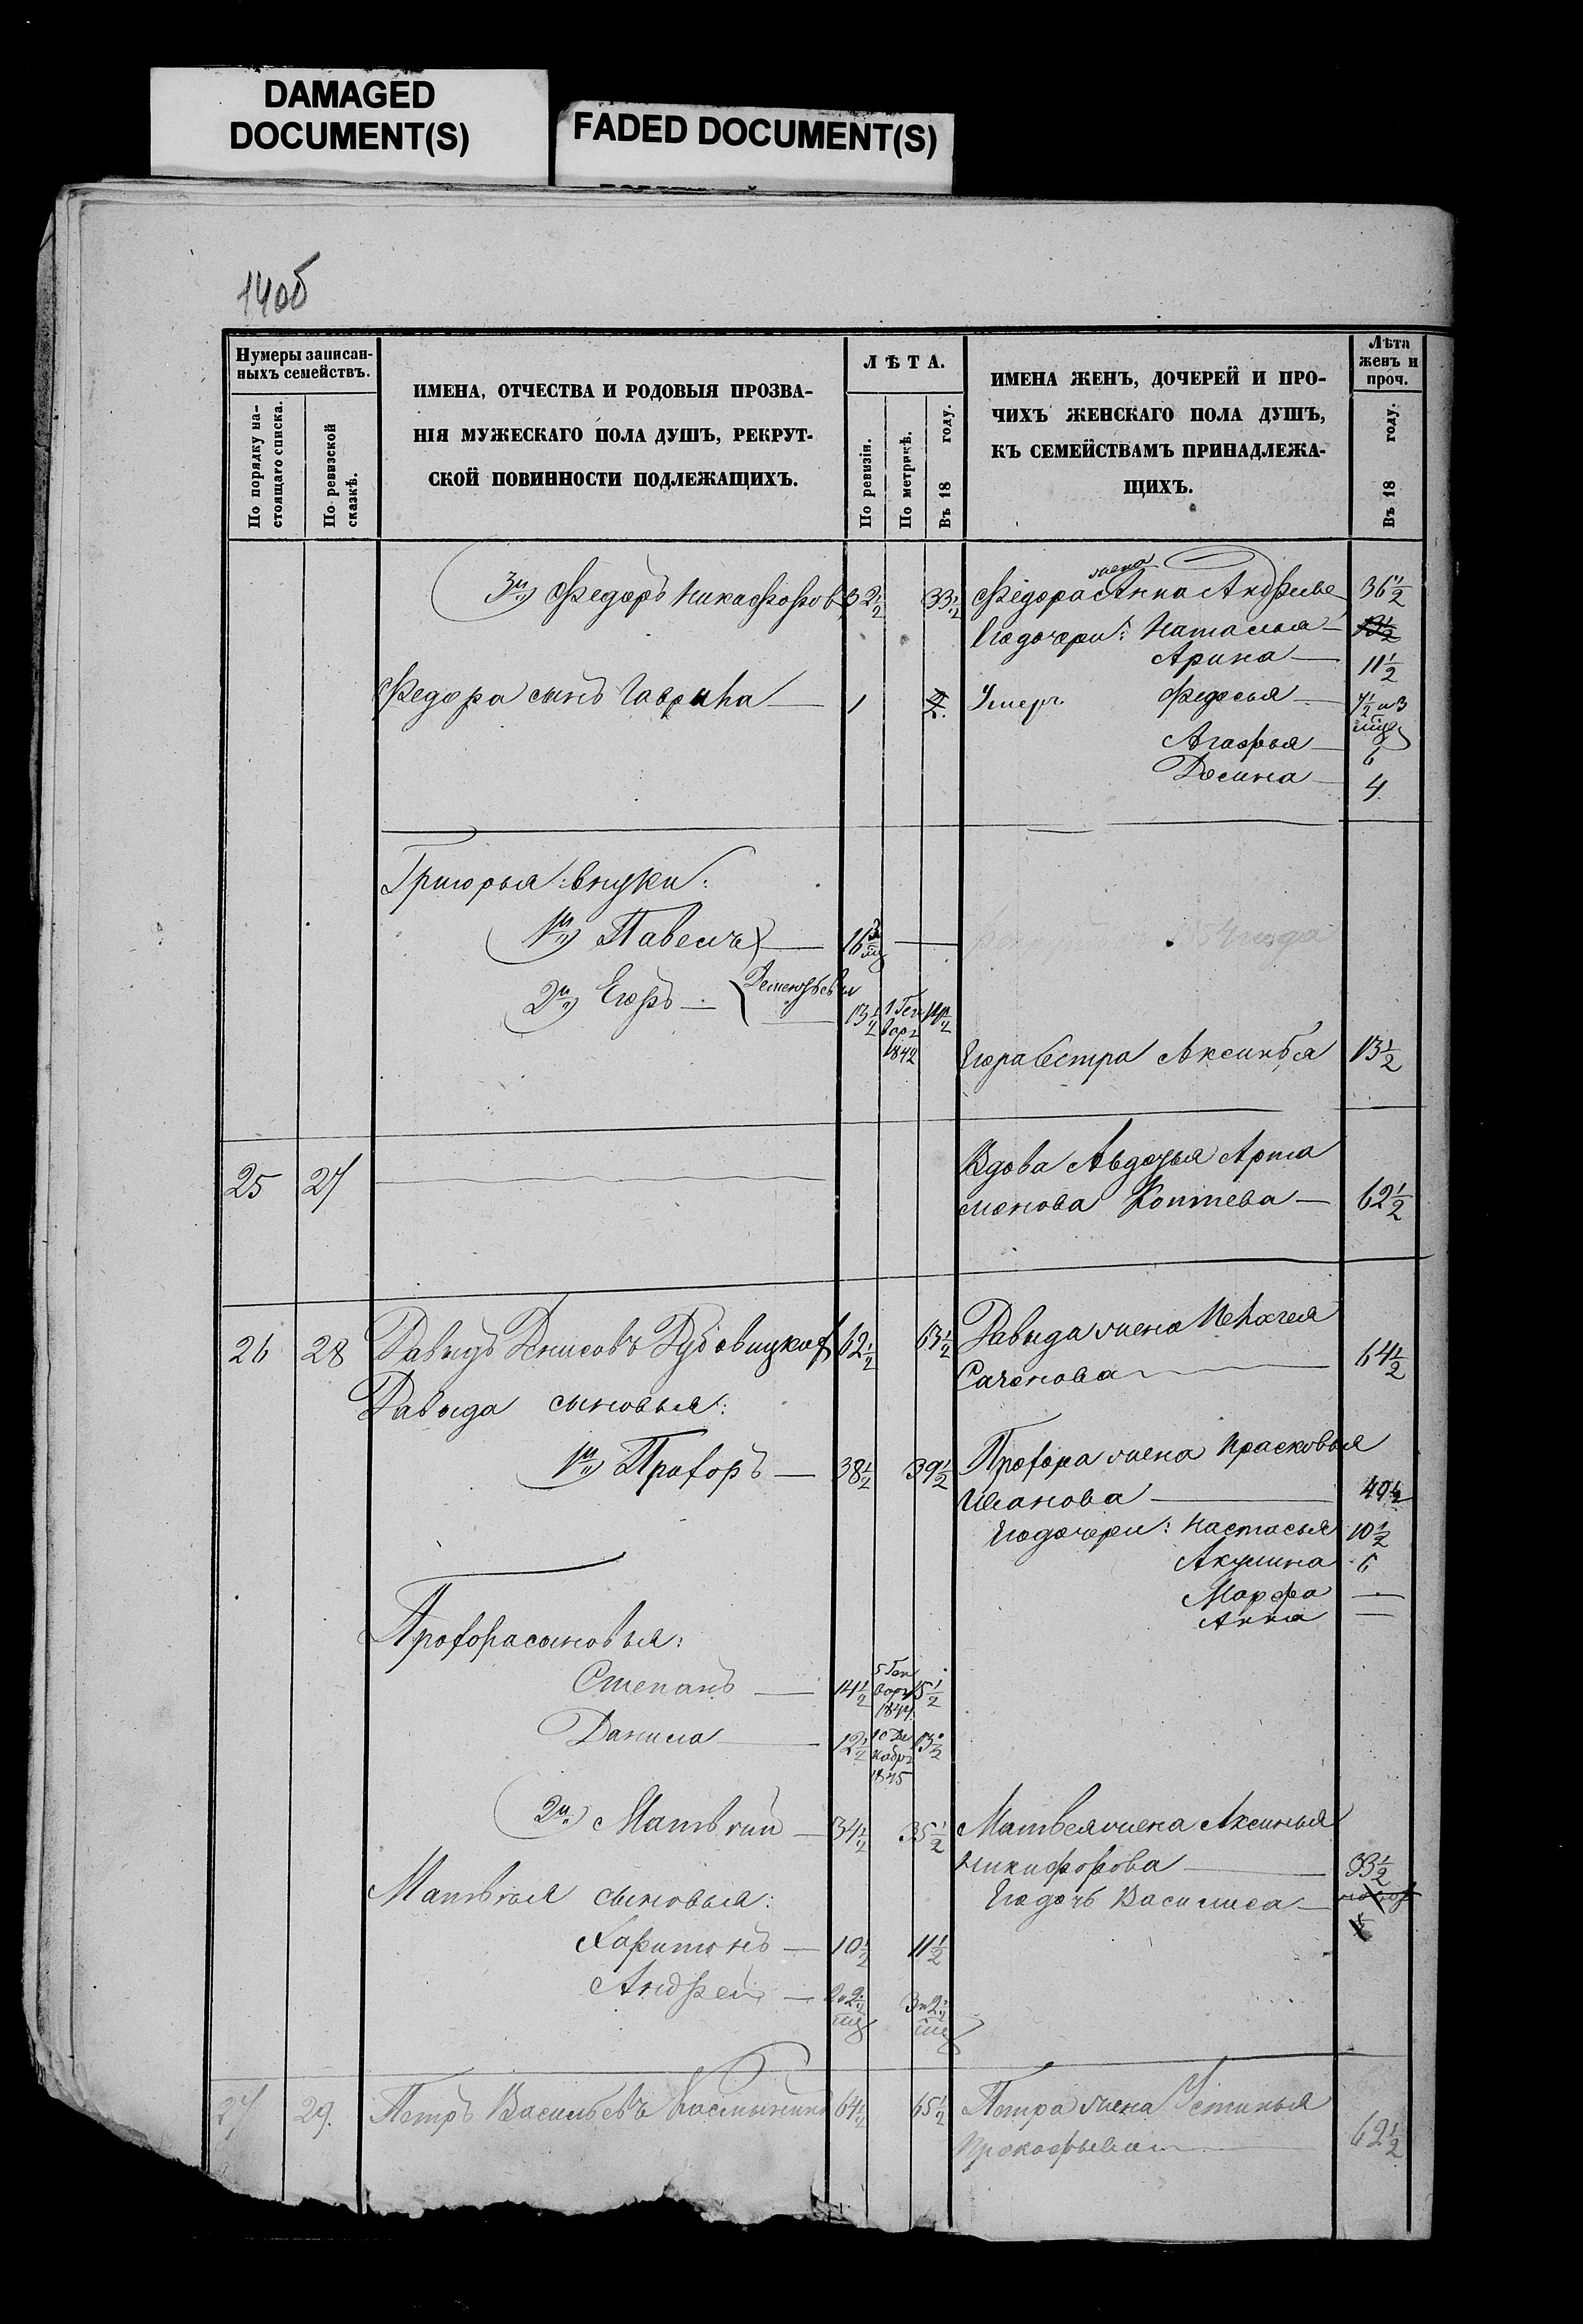 DAMAGED
DOCUMENT(S)
FADED DOCUMENT(S)
140б
Нумеры записан-
ныхъ семействъ.
По порядку на-
стоящаго списка.
По ревизской
сказкѣ.
ИМЕНА, ОТЧЕСТВА И РОДОВЫЯ ПРОЗВА-
НІЯ МУЖЕСКАГО ПОЛА ДУШЪ, РЕКРУТ-
СКОЙ ПОВИННОСТИ ПОДЛЕЖАЩИХЪ.
ЛѢТА.
По ревизіи.
По метрикѣ.
Въ 18 году.
ИМЕНА ЖЕНЪ, ДОЧЕРЕЙ И ПРО-
ЧИХЪ ЖЕНСКАГО ПОЛА ДУШЪ,
КЪ СЕМЕЙСТВАМЪ ПРИНАДЛЕЖА-
ЩИХЪ.
Лѣта
женъ и
проч.
Въ 18 году.
3й) Федоръ Никафоровъ 32½ 33½ Федора жена Анна Андрѣева 36½
Его дочери: Наталья 13½
Арина 11½
Федора сынъ Гаврила 1 2 Умеръ Федосья 7½ и 3 мѣц
Агафья 6
Домна 4
Григорья внуки:
1й) Павелъ 16 1854 года
2й) Егоръ Дементьевы 13½ 1 Генваря 1842 14½
Егора сестра Аксинья 13½
25 27 Вдова Авдотья Арта
монова Коптева 62½
26 28 Давыдъ Денисовъ Дубовицкой 62½ 63½ Давыда жена Пелагея
Сазонова 64½
Давыда сыновья:
1й) Прохоръ 38½ 39½ Прохора жена Прасковья
Иванова 40½
Его дочери: Настасья 10½
Акулина 6
Марфа —
Анна —
Прохора сыновья:
Степанъ 14½ 5 Генваря 1844 15½
Данила 12½ 10 Декабря 1845 13½
2й) Матвѣй 34½ 35½ Матвея жена Аксинья
Никифорова 33½
Матвѣя сыновья: Его дочь Василиса
Харитонъ 10½ 11½
Андрей 2 и 2 мѣц 3 и 2 мѣц
27 29. Петръ Васильевъ 64½ 65½ Петра жена Устинья
Прокофьева 62½